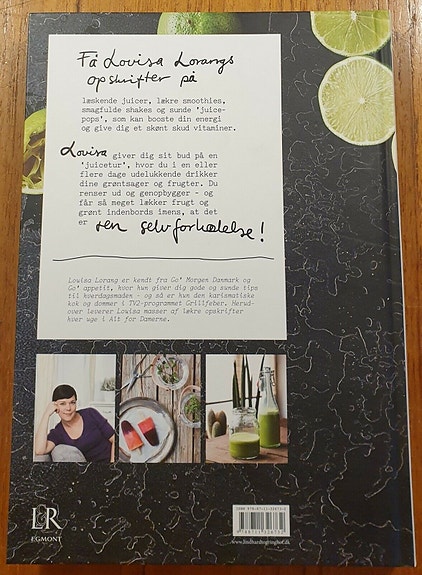 Få Lovisa Lorangs
opskrifter på
læskende juicer, lækre smoothies,
smagfulde shakes og sunde 'juice-
pops', som kan booste din energi
og give dig et skønt skud vitaminer.
Lovisa giver dig sit bud på en
'juicetur', hvor du i en eller
flere dage udelukkende drikker
dine grøntsager og frugter. Du
renser ud og genopbygger - og
får så meget lækker frugt og
grønt indenbords imens, at det
er ren selvforkælelse!
Louisa Lorang er kendt fra Go' Morgen Danmark og
Go' appetit, hvor hun giver dig gode og sunde tips
til hverdagsmaden - og så er hun den karismatiske
kok og dommer i TV2-programmet Grillfeber. Herud-
over leverer Louisa masser af lækre opskrifter
hver uge i Alt for Damerne.
L&R
EGMONT
www.lindhardtogringhof.dk